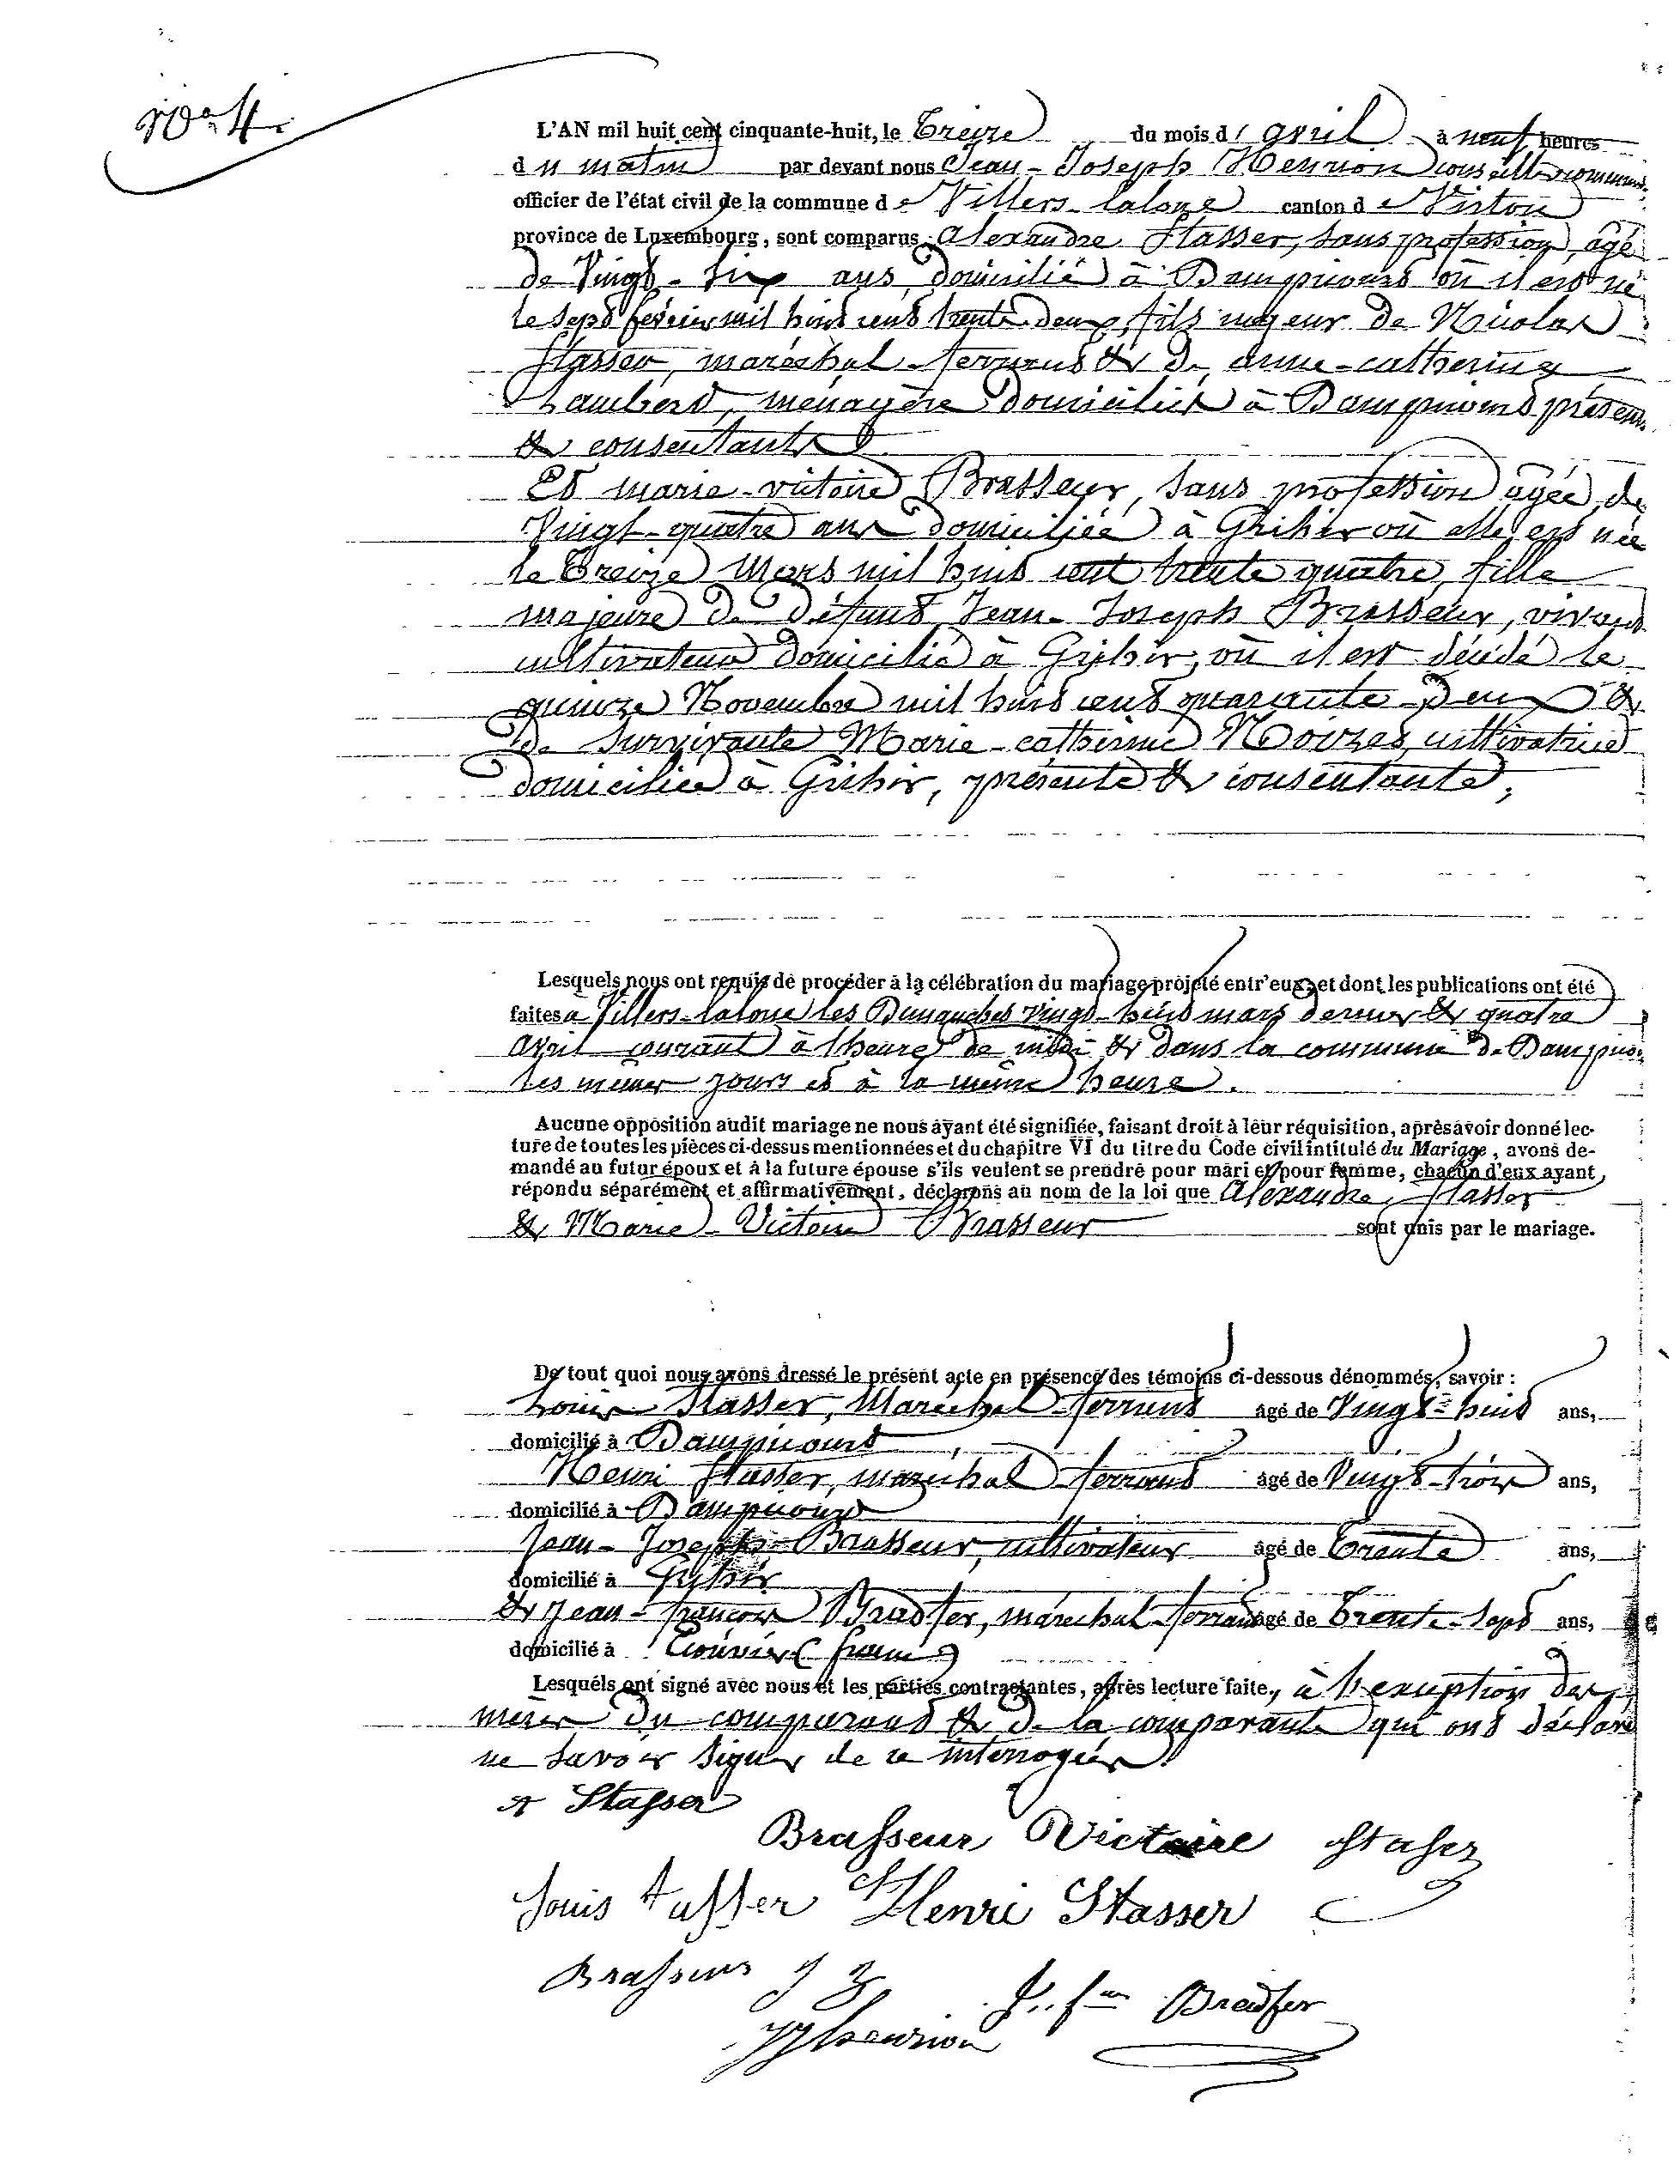 No 4.
L'AN mil huit cent cinquante-huit, le Treize du mois d'avril à neuf heures
du matin par devant nous Jean-Joseph Henrion conseiller communal
officier de l'état civil de la commune de Villers-laloue canton de Virton
province de Luxembourg, sont comparus Alexandre Stasser, sans profession, âgé
de Vingt-six ans, domicilié à Dampicourt où il est né
le sept février mil huit cent trente deux, fils majeur de Nicolas
Stasser, maréchal-ferrant & de anne-catherine
Lambert, ménagère domiciliés à Dampicourt présents
& consentants
Et marie-victoire Brasseur, sans profession âgée de
Vingt-quatre ans domiciliée à Grihir où elle est née
le Treize Mars mil huit cent trente quatre, fille
majeure de défunt Jean-Joseph Brasseur, vivant
cultivateur domicilié à Grihir, où il est décédé le
quinze Novembre mil huit cent quarante deux &
de survivante Marie-catherine cultivatrice
domiciliée à Grihir, présente & consentante,
Lesquels nous ont requis de procéder à la célébration du mariage projeté entr'eux, et dont les publications ont été
faites à Villers-laloue les Dimanches vingt-huit mars dernier & quatre
avril courant à l'heure de midi & dans la commune de Dampicourt
les mêmes jours et à la même heure.
Aucune opposition audit mariage ne nous ayant été signifiée, faisant droit à leur réquisition, après avoir donné lec-
ture de toutes les pièces ci-dessus mentionnées et du chapitre VI du titre du Code civil intitulé du Mariage, avons de-
mandé au futur époux et à la future épouse s'ils veulent se prendre pour mari et pour femme, chacun d'eux ayant
répondu séparément et affirmativement, déclarons au nom de la loi que Alexandre Stasser
& Marie-Victoire Brasseur sont unis par le mariage.
De tout quoi nous avons dressé le présent acte en présence des témoins ci-dessous dénommés, savoir :
Louis Stasser, Maréchal-ferrant âgé de Vingt-huit ans,
domicilié à Dampicourt
Henri Stasser, maréchal-ferrant âgé de Vingt-trois ans,
domicilié à Dampicourt
Jean-Joseph Brasseur, cultivateur âgé de Trente ans,
domicilié à Grihir
& Jean-françois Bradfer, maréchal-ferrant âgé de Trente-sept ans,
domicilié à (france)
Lesquels ont signé avec nous et les parties contractantes, après lecture faite, à l'exception des
mères du comparant & de la comparante qui ont déclaré
ne savoir signer de ce interrogées
A Stasser
Brasseur Victoire Stasser
Louis Stasser Henri Stasser
Brasseur J J
J. fois Bradfer
JJ henrion